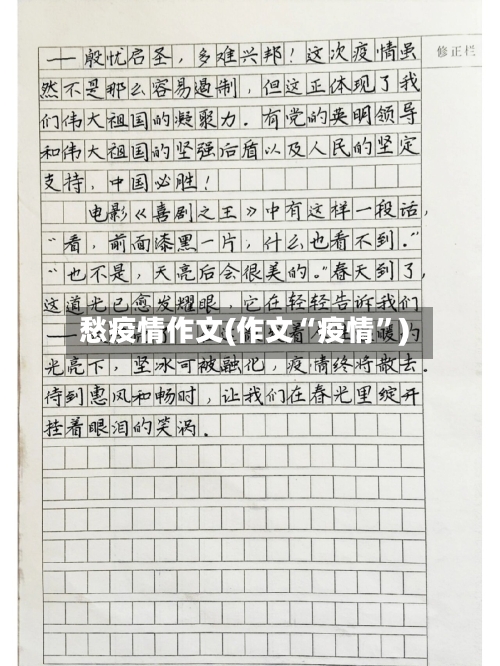 ——殷忧启圣，多难兴邦！这次疫情虽
修正栏
然不是那么容易遏制，但这正体现了我
们伟大祖国的凝聚力。有党的英明领导
和伟大祖国的坚强后盾以及人民的坚定
支持，中国必胜！
电影《喜剧之王》中有这样一段话，
“看，前面漆黑一片，什么也看不到。”
“也不是，天亮后会很美的。”春天到了，
这道光已愈发耀眼，它在轻轻告诉我们
愁疫情作文(作文“疫情”)
光亮下，坚冰可被融化，疫情终将散去。
待到惠风和畅时，让我们在春光里绽开
挂着眼泪的笑涡。